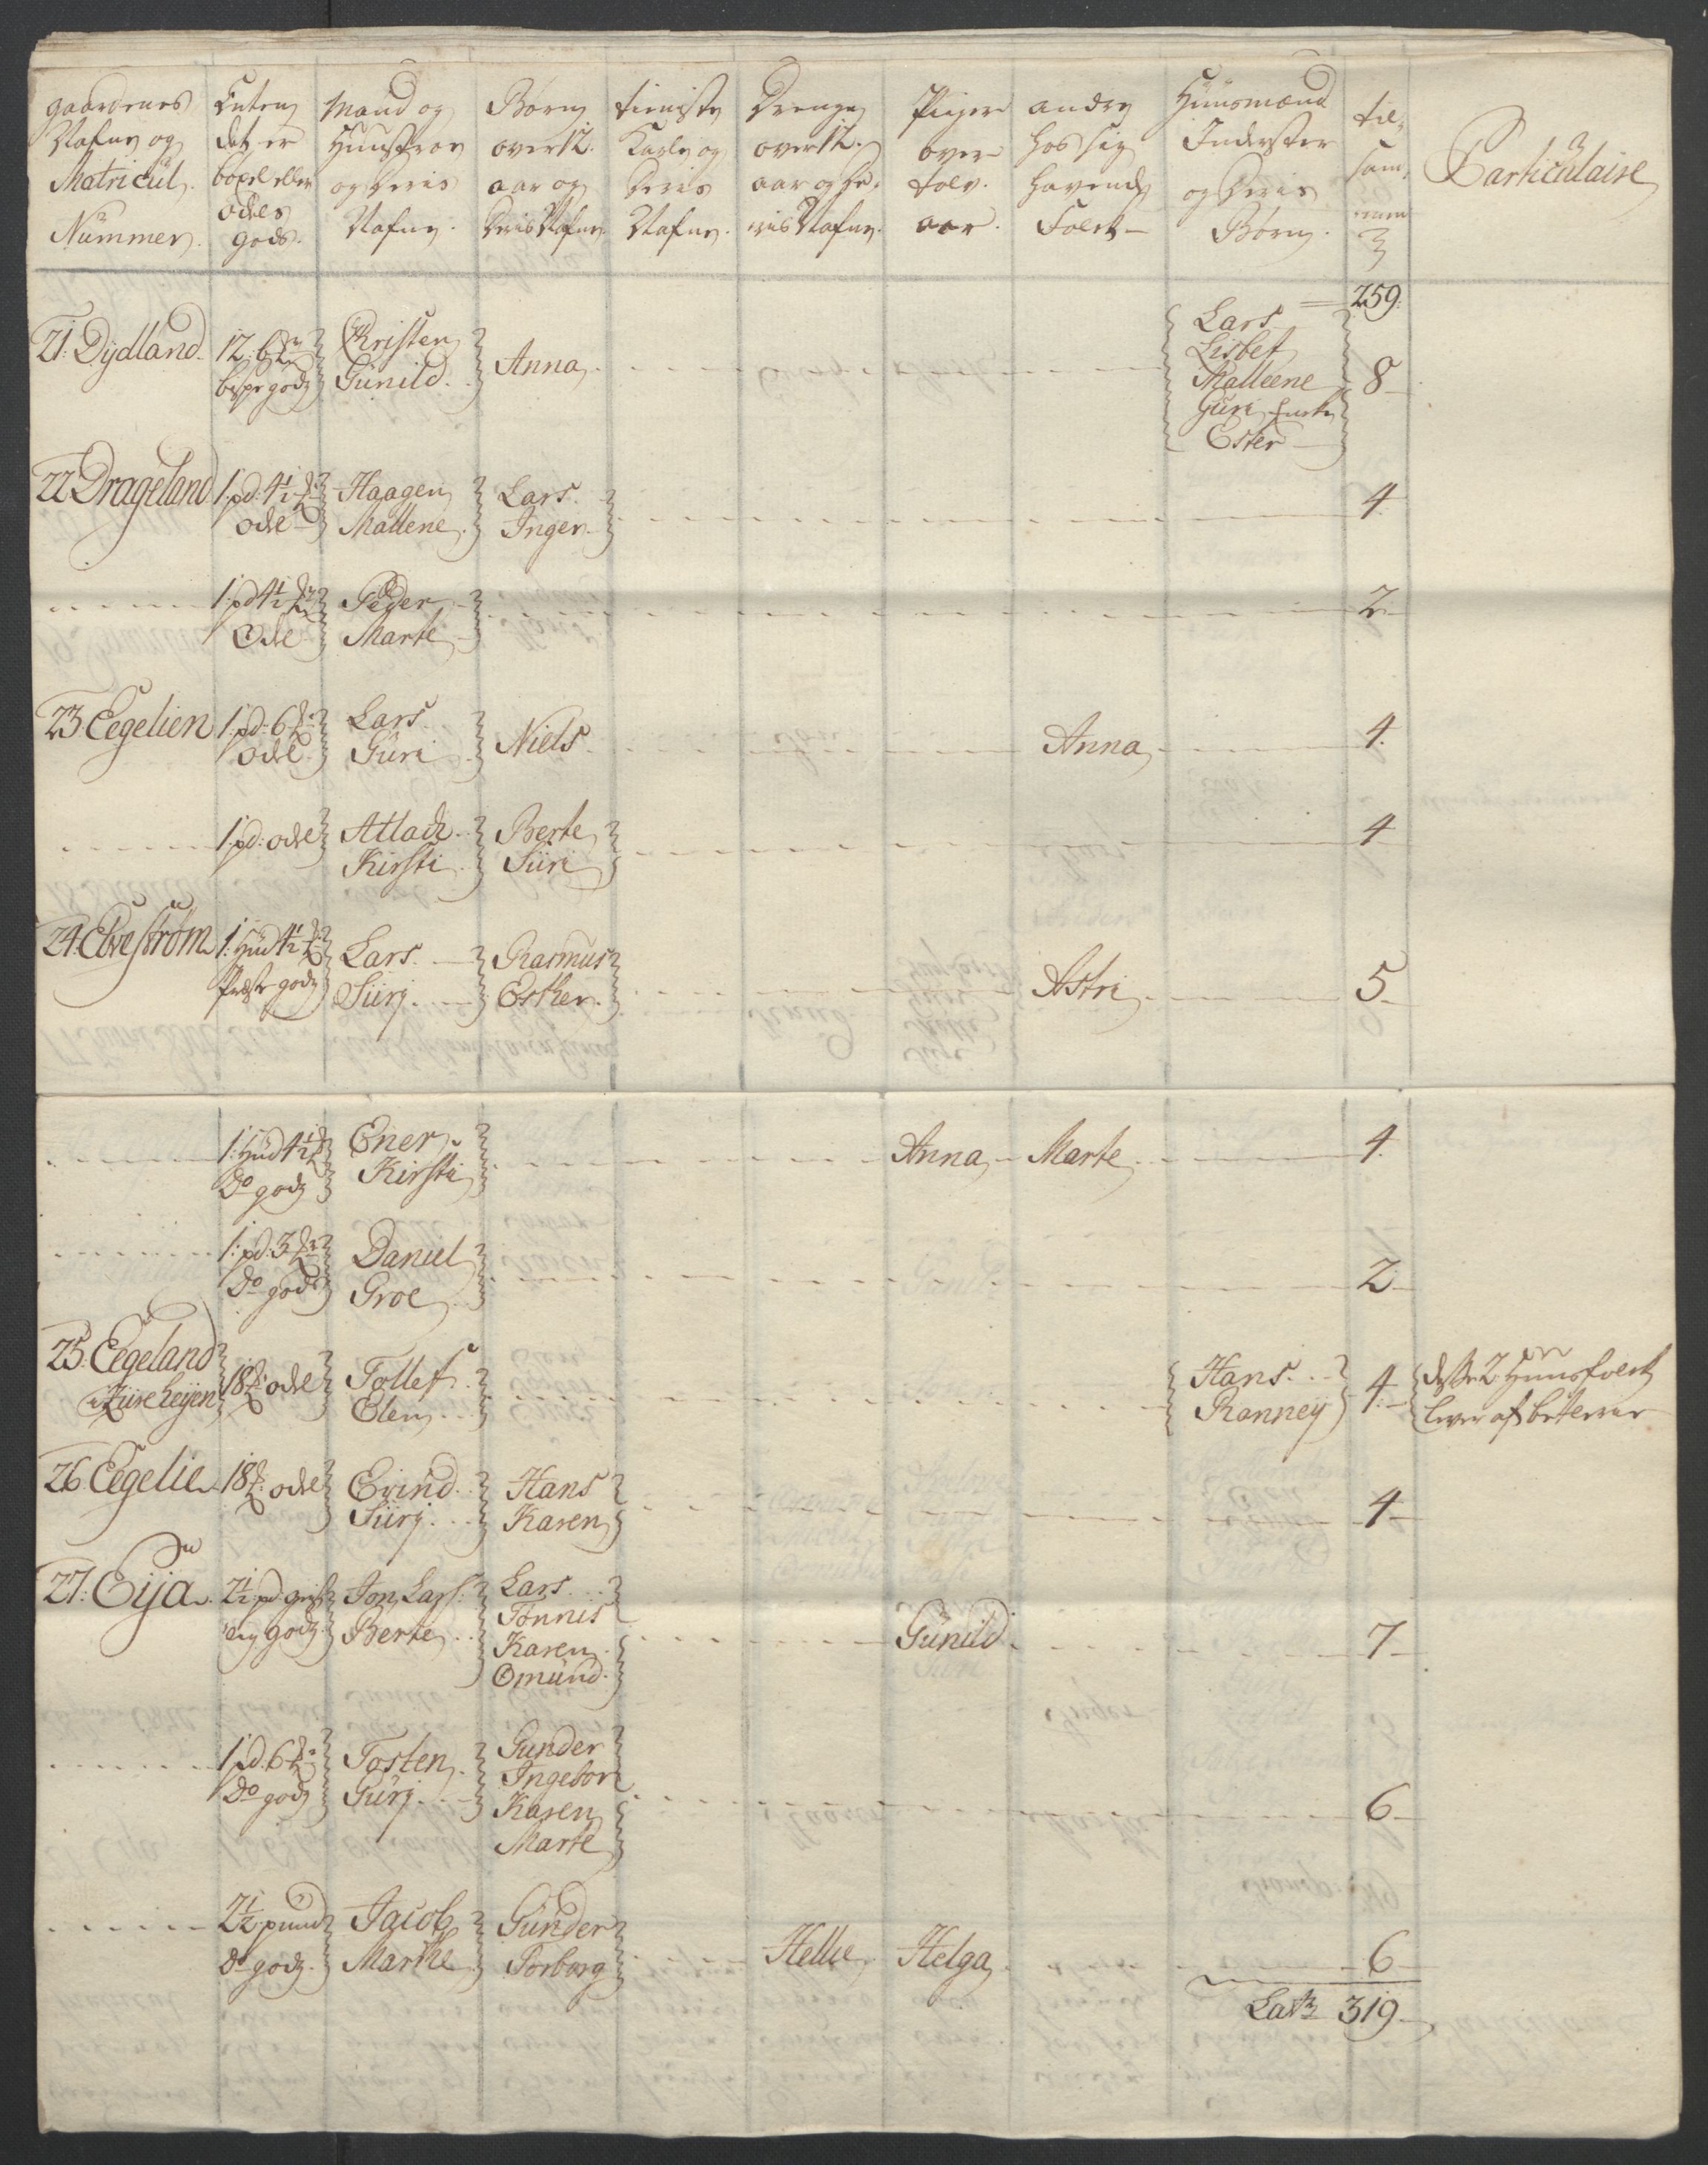 gaardenes
Nafne og
Matricul
Nummer.
Enten
det er
bøxel eller
odels
gods.
Mand og
Huustrou
og deris
Nafne.
Børn
over 12.
aar og
deris Nafne.
tieniste
Karle og
deris
Nafne.
Drenge
over 12.
aar og de,
ris Nafne.
Piiger
over
tolv.
aar.
andre
hos sig
havende
Folck
Huusmænd
Inderster
og deris
Børn.
til,
sam,
men
Particulaire
259.
21. Dydland
12:
godz
Christen
Gunild
Anna
Lars
Lisbet
Malleene
Guri
Ester
8
22 Drageland
1 pd: 4½
odel
Haagen
Mallene
Lars
Inger
4
1 pd 4½
Odel
Peder
Marte
2
23 Eegelien
1 pd: 6
odel
Lars
Guri
Niels
Anna
4.
1 pd: odel
Atlack
Kirsti
Berte
Siri
4
24. Elvestrøm
1. Hud 4½
Præste godz
Lars
Siirj
Rasmus
Esther
Astri
5
1. Hud 4½
Do godz
Ener
Kirsti
Anna
Marte
4.
1: pd: 3
Do godz
Daniel
Groe
2
25. Eegeland
i
18 odel
Tollef
Elen
Hans
Ranney
4.
disse 2 Huusfolck
lever af betlerie
26. Eegelie
18 odel
Evind
Siirj
Hans
Karen
4
27. Eija
2½ pd
godz
Jon Lars:
Berte
Lars
Tønnis
Karen
Omund
Gunild
7
1 pd. 6
Do godz
Tosten
Gurj
Gunder
Ingebor
Karen
Marte
6
2½ pund
Do godz
Jacob
Marthe
Gunder
Torborg
Helle
Helga
6
Lat 319